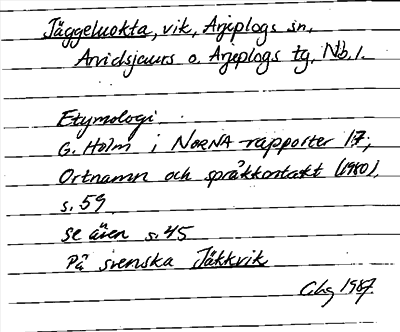 Jäggeluokta, vik, Arjeplogs sn,
Arvidsjaurs o. Arjeplogs tg, Nb.l.
Etymologi
G. Holm i NORNA-rapporter 17;
Ortnamn och språkkontakt (1980),
s. 59
se även s. 45
På svenska Jäkkvik
1987.